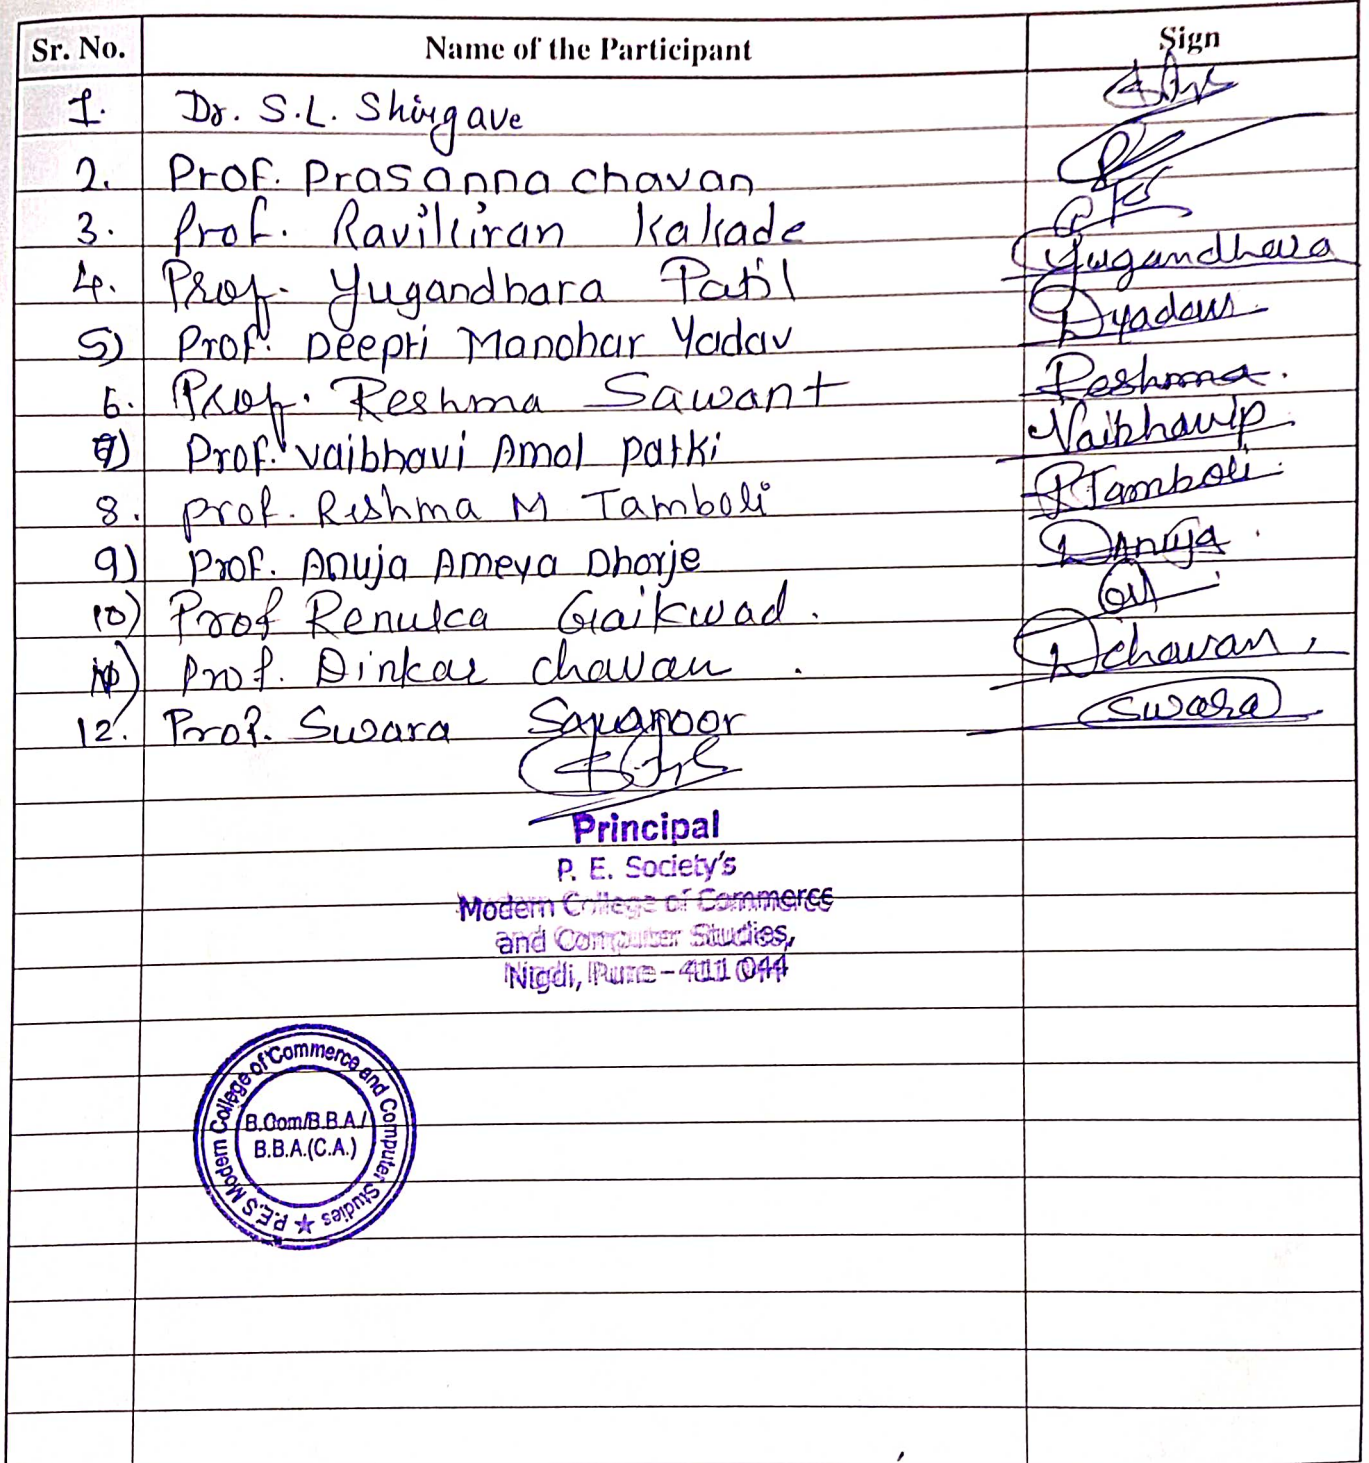 Sr. No. Name of the Participant Sign
1. Dr. S.L. Shirgave
2. Prof. Prasanna chavan
3. Prof. Ravikiran Kakade
4. Prof. Yugandhara Patil Yugandhara
5) Prof. Deepti Manohar Yadav Dyadav
6. Prof. Reshma Sawant Reshma.
7) Prof. Vaibhavi Amol Patki VaibhaviP
8. Prof. Reshma M Tamboli RTamboli
9) Prof. Anuja Ameya Dhorje Anuja
10) Prof Renuka Gaikwad.
Prof. Dinkar chavan Dchavan
12. Prof. Swara Swara
Principal
P. E. Society's
Modern College of Commerce
and Computer Studies,
Nigdi, Pune - 411 044
P.E.S Modern College of Commerce and Computer Studies
B.Com/B.B.A/
B.B.A.(C.A.)